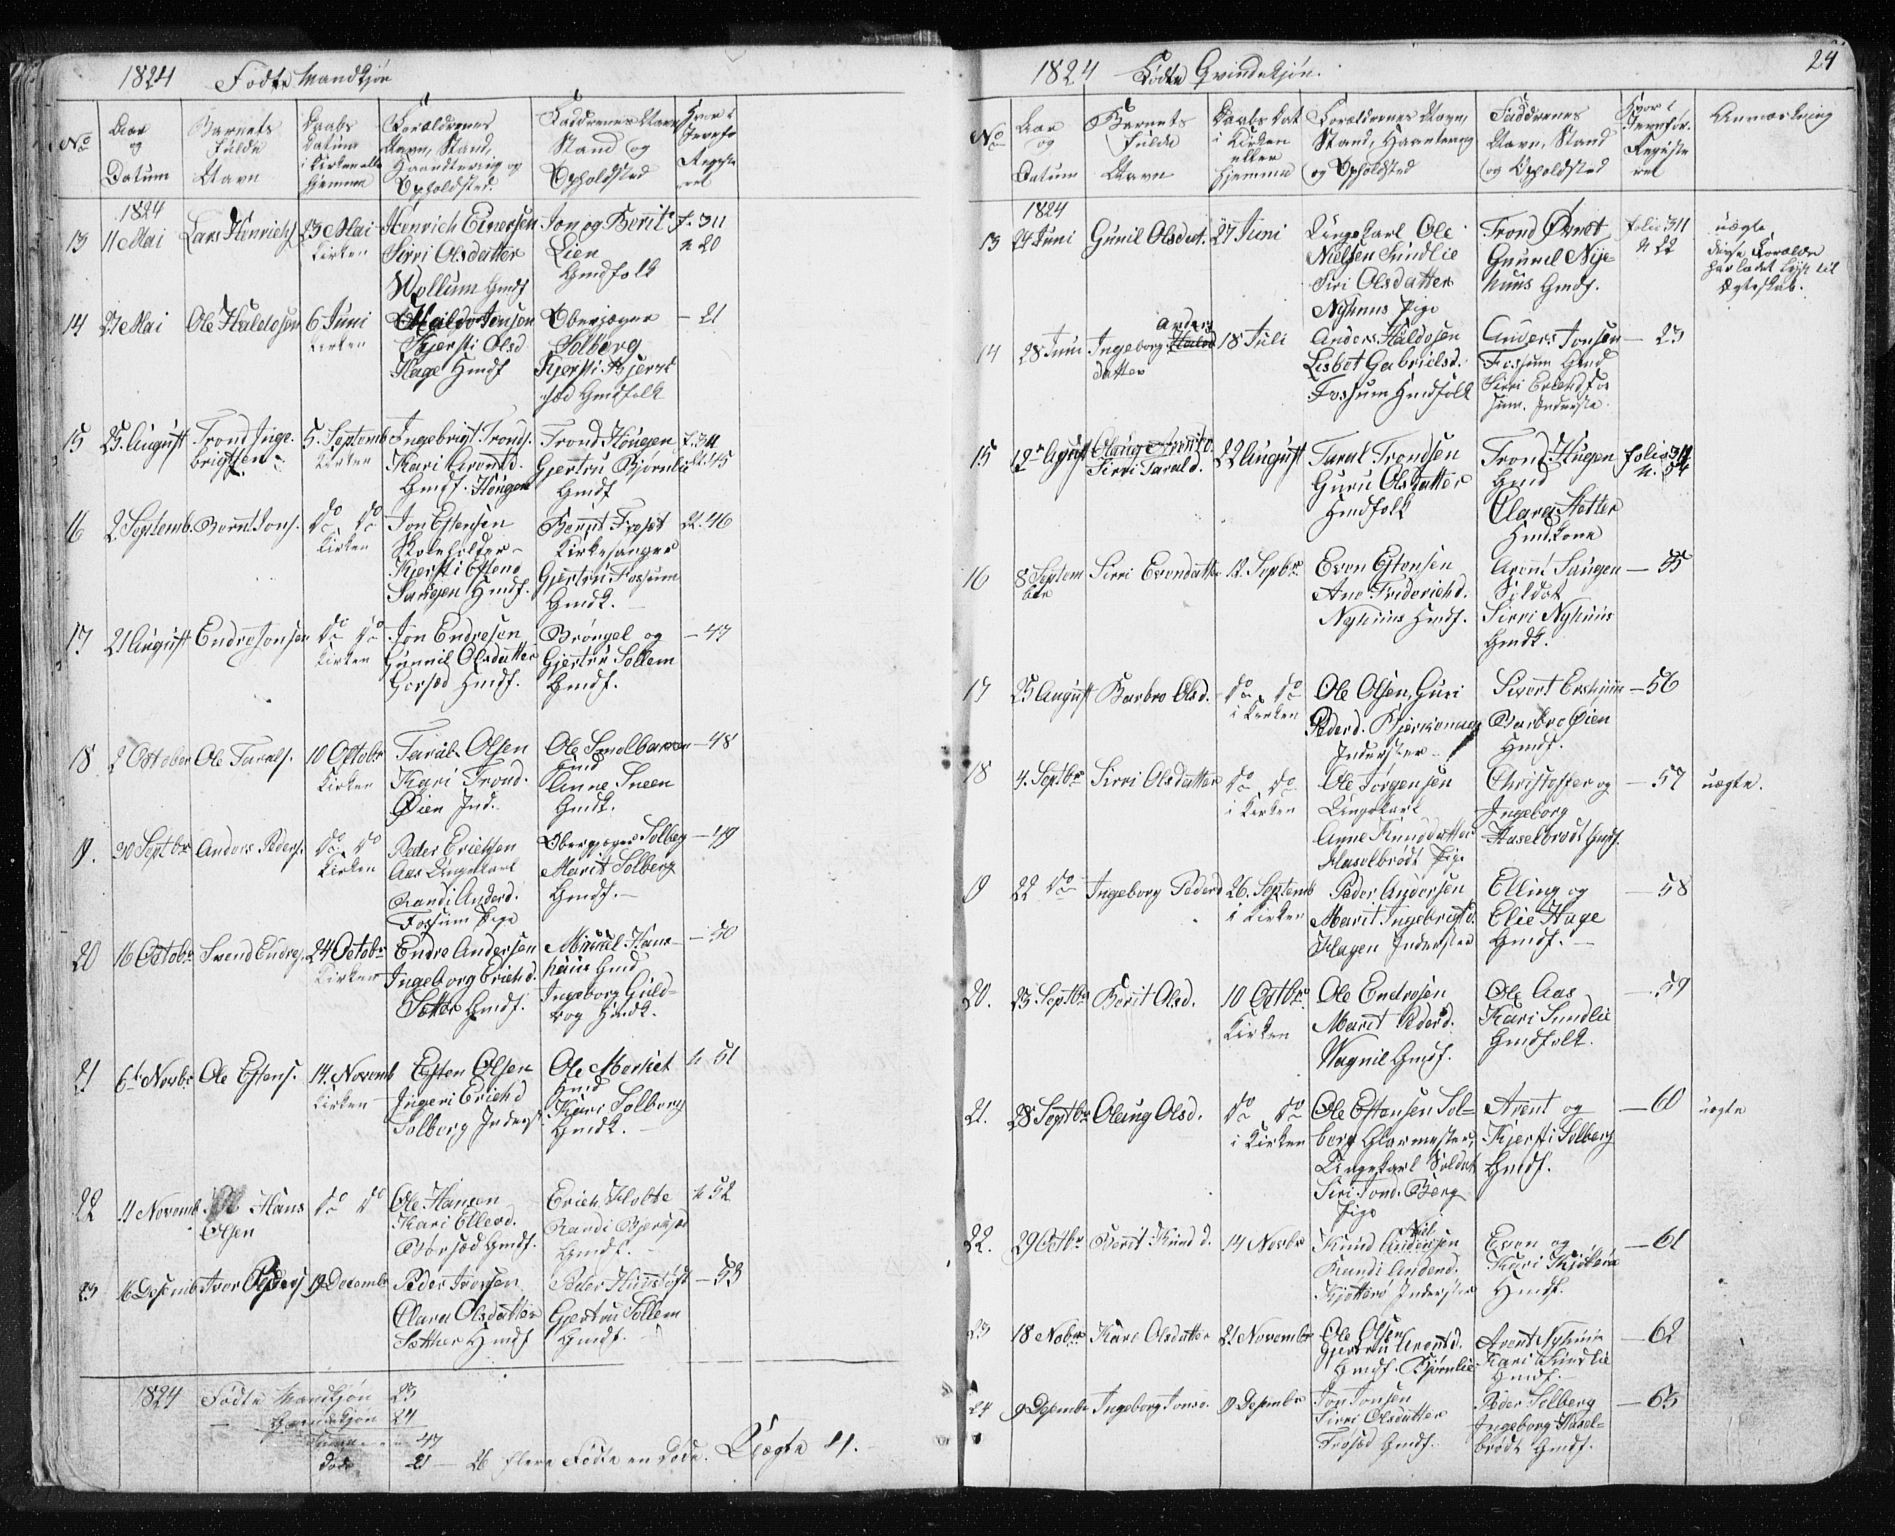 1824 Fødte Mandkjøn
No
Aar og Datum
Barnets fulde Navn
Daabs Datum i Kirken eller hjemme
Forældrenes Navn, Stand, Haandtering og Opholdsted
Faddrenes Navn Stand og Opholdsted
Hvor i Jevnfø Registeret
1824
13 11 Mai Lars Henrichs 23 Mai Kirken
Henrich Einersen
Sirri Olsdatter
Wollum Gmdf
Jon og Berit
Lien
Gmdfolk
f. 311
n 20
14 27 Mai Ole Haldosen 6 Juni Kirken
Haldo Jonsen
Kjersti Olsd
Hage Hmdf
Oberjæger
Solberg
Kjersti Bjerk-
sæd Gmdfolk
— 21
15 25. August Trond Inge-
brigtsen
5. Septemb Kirken
Ingebrigt Tronds.
Kari Arentsd.
Gmdf. Hougen
Trond Hougen
Gjertru Bjørnlie
Gmdf
f. 311
n. 45
16 2 Septemb. Bernt Jons. do do Kirken
Jon Estensen
Skoleholder
Kjersti Estensd
Saugen Hmdf.
Bernt Frøset
Kirkesanger
Gjertru Fossum
Gmdk.
n. 46
17 21 August Endre Jonsen do do Kirken
Jon Endresen
Gunnil Olsdatter
Gorsæd Hmdf.
Brøngel og
Gjertru Sollem
Gmdf.
— 47
18 2 October Ole Taralds. 10 Octobr Kirken
Tarald Olsen
Kari Trond.
Øien Ind.
Ole Sendbakken
Gmd
Anne Sneen
Gmdk.
— 48
19. 30 Septbr Anders Peders. do do Kirken
Peder Erichsen
Aas Ungekarl
Randi Andersd.
Fossum Pige
Oberjæger Solberg
Marit Solberg
Gmdf.
— 49
20 16 Octobr Svend Endres. 24 Octobr Kirken
Endre Andersen
Ingeborg Erichsd.
Sæter Gmdf.
Ingeborg Guld-
bog Gmdk.
— 50
21 6te Novbr Ole Estens. 14. Novemb Kirken
Esten Olsen
Ingeri Erichsd
Solberg Inderst
Ole Morket
Gmd
Kari Solberg
Gmdk.
n 51
22 11 Novemb Hans
Olsen
do do
Ole Hansen
Kari Ellevd.
Børsæd Gmdf.
Erich Flodte
Randi Bjerksæd
Gmdf.
n 52
23 16 Desemb Iver Peders 19 Decembr
Peder Iversen
Clara Olsdatter
Sætther Hmdf
Gjertru Sollem
Gmdf.
— 53
1824 Fødte Mandkjøn 23
— Qvindekjøn 24
Summa 47
Døde 21 — 26 flere Fødte en Døde. Uægte 4.
24
1824 Fødte Qvindekjøn.
No
Aar og Datum
Barnets fulde Navn
Daabs Dat i Kirken eller hjemme
Forældrenes Navn, Stand, Haantering og Opholdsted
Faddrenes Navn, Stand og Opholdsted
Hvor i Jevnfør. Registeret
Anmærkning
1824
13 24 Juni Gunil Olsdat. 27 Juni
Ungekarl Ole
Nielsen Sundlie
Siri Olsdatter
Nyhuus Pige
Trond Ørnet
Gunnel Nye-
huus Gmdf.
folio 311
n 22
uægte
disse Forældre
har ladet lyse til
Ægteskab.
14 28 Juni Ingeborg Anders
datter
18 Juli
Anders Haldosen
Lisbet Gabrielsd.
Fossum Hmdfolk
Anders Jonsen
Fossum Gmd
Sirri Erichsd Fos
sum. Inderste
— 23
15 12te August Sirri Tarald. 22 August
Taral Trondsen
Guru Olsdatter
Hmdfolk
Trond Hugen
Gmd
Clara Sætter
Hmdkone
folio 311
n. 54
16 8 Septem
ber
Sirri Evendatter 12. Sepbr
Even Estensen
Ane Friderichd.
Nyhuus Hmdf.
Arent Saugen
Soldat
Sirri Nyhuus
Gmdk.
— 55
17 25 August Barbro Olsd. do do i Kirken
Ole Olsen, Guri
Pederd.
Inderster
Barbro Øien
Hmdf.
— 56
18 4. Septbr Sirri Olsdatter do do i Kirken
Ole Jørgensen
Ungekarl
Anne Knuddatter
Haselbrødt Pige
Christoffer og
Ingeborg
Haselbrødt Gmdf.
— 57 uægte.
19 22 do Ingeborg Pederd 26. Septemb i Kirken
Peder Andersen
Marit Ingebrigtd.
Hagen Inderster
Elling og
Elie Hage
Gmdf.
— 58
20. 23. Septbr Berit Olsd. 10 Octbr Kirken
Ole Endresen
Marit Pedersd.
Wagnil Gmdf.
Ole Aas
Kari Sundlie
Gmdfolk.
— 59
21. 28 Septbr Olaug Olsd. do do i Kirken
Ole Estensen Sol-
berg Glarmester,
Ungekarl Soldat
Siri Tond. Berg
Pige
Arent og
Kjersti Solberg
Gmdf.
— 60 uægte
22. 29 Octbr Berit Knud d. 14 Novbr
Knud Andersen
Randi Andersd.
Kjøtterø Inderster
Even og
Kari Kjøtterø
Hmdf.
— 61
23 18 Nobr Kari Olsdatter 21 Novembr
Ole Olsen
Gjertru Arentsd.
Gmdf. Bjørnlie
Arent Nyhuus
Kari Sundlie
Gmdf.
— 62
24 9 Desembr Ingeborg Jonsd. 19 Desembr
Jon Jonsen
Sirri Olsdatter
Frøsed Gmdf.
Peder Solberg
Ingeborg Hasel-
brødt Gmdf.
— 63